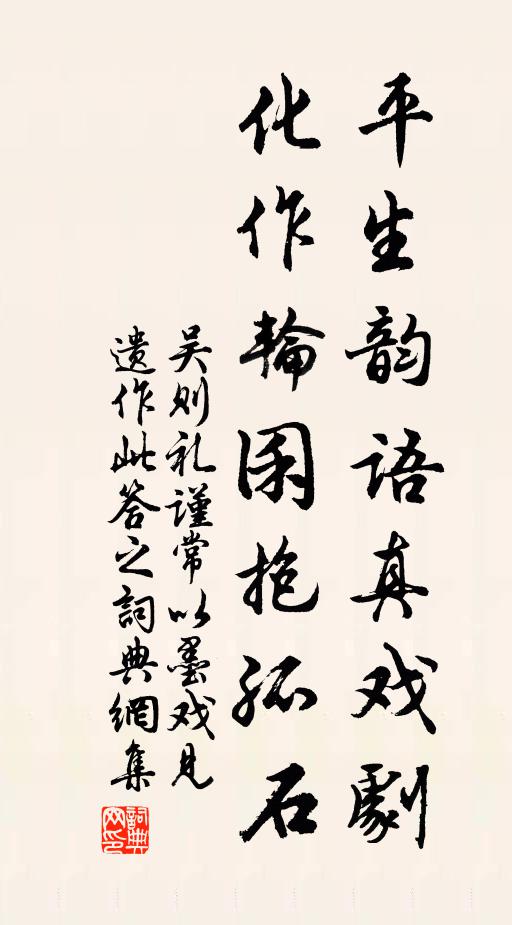 平生韵语真戏劇
化作輪囷抱孤石
吴则礼谨常以墨戏见
遗作此答之詞典網集
詞典網印